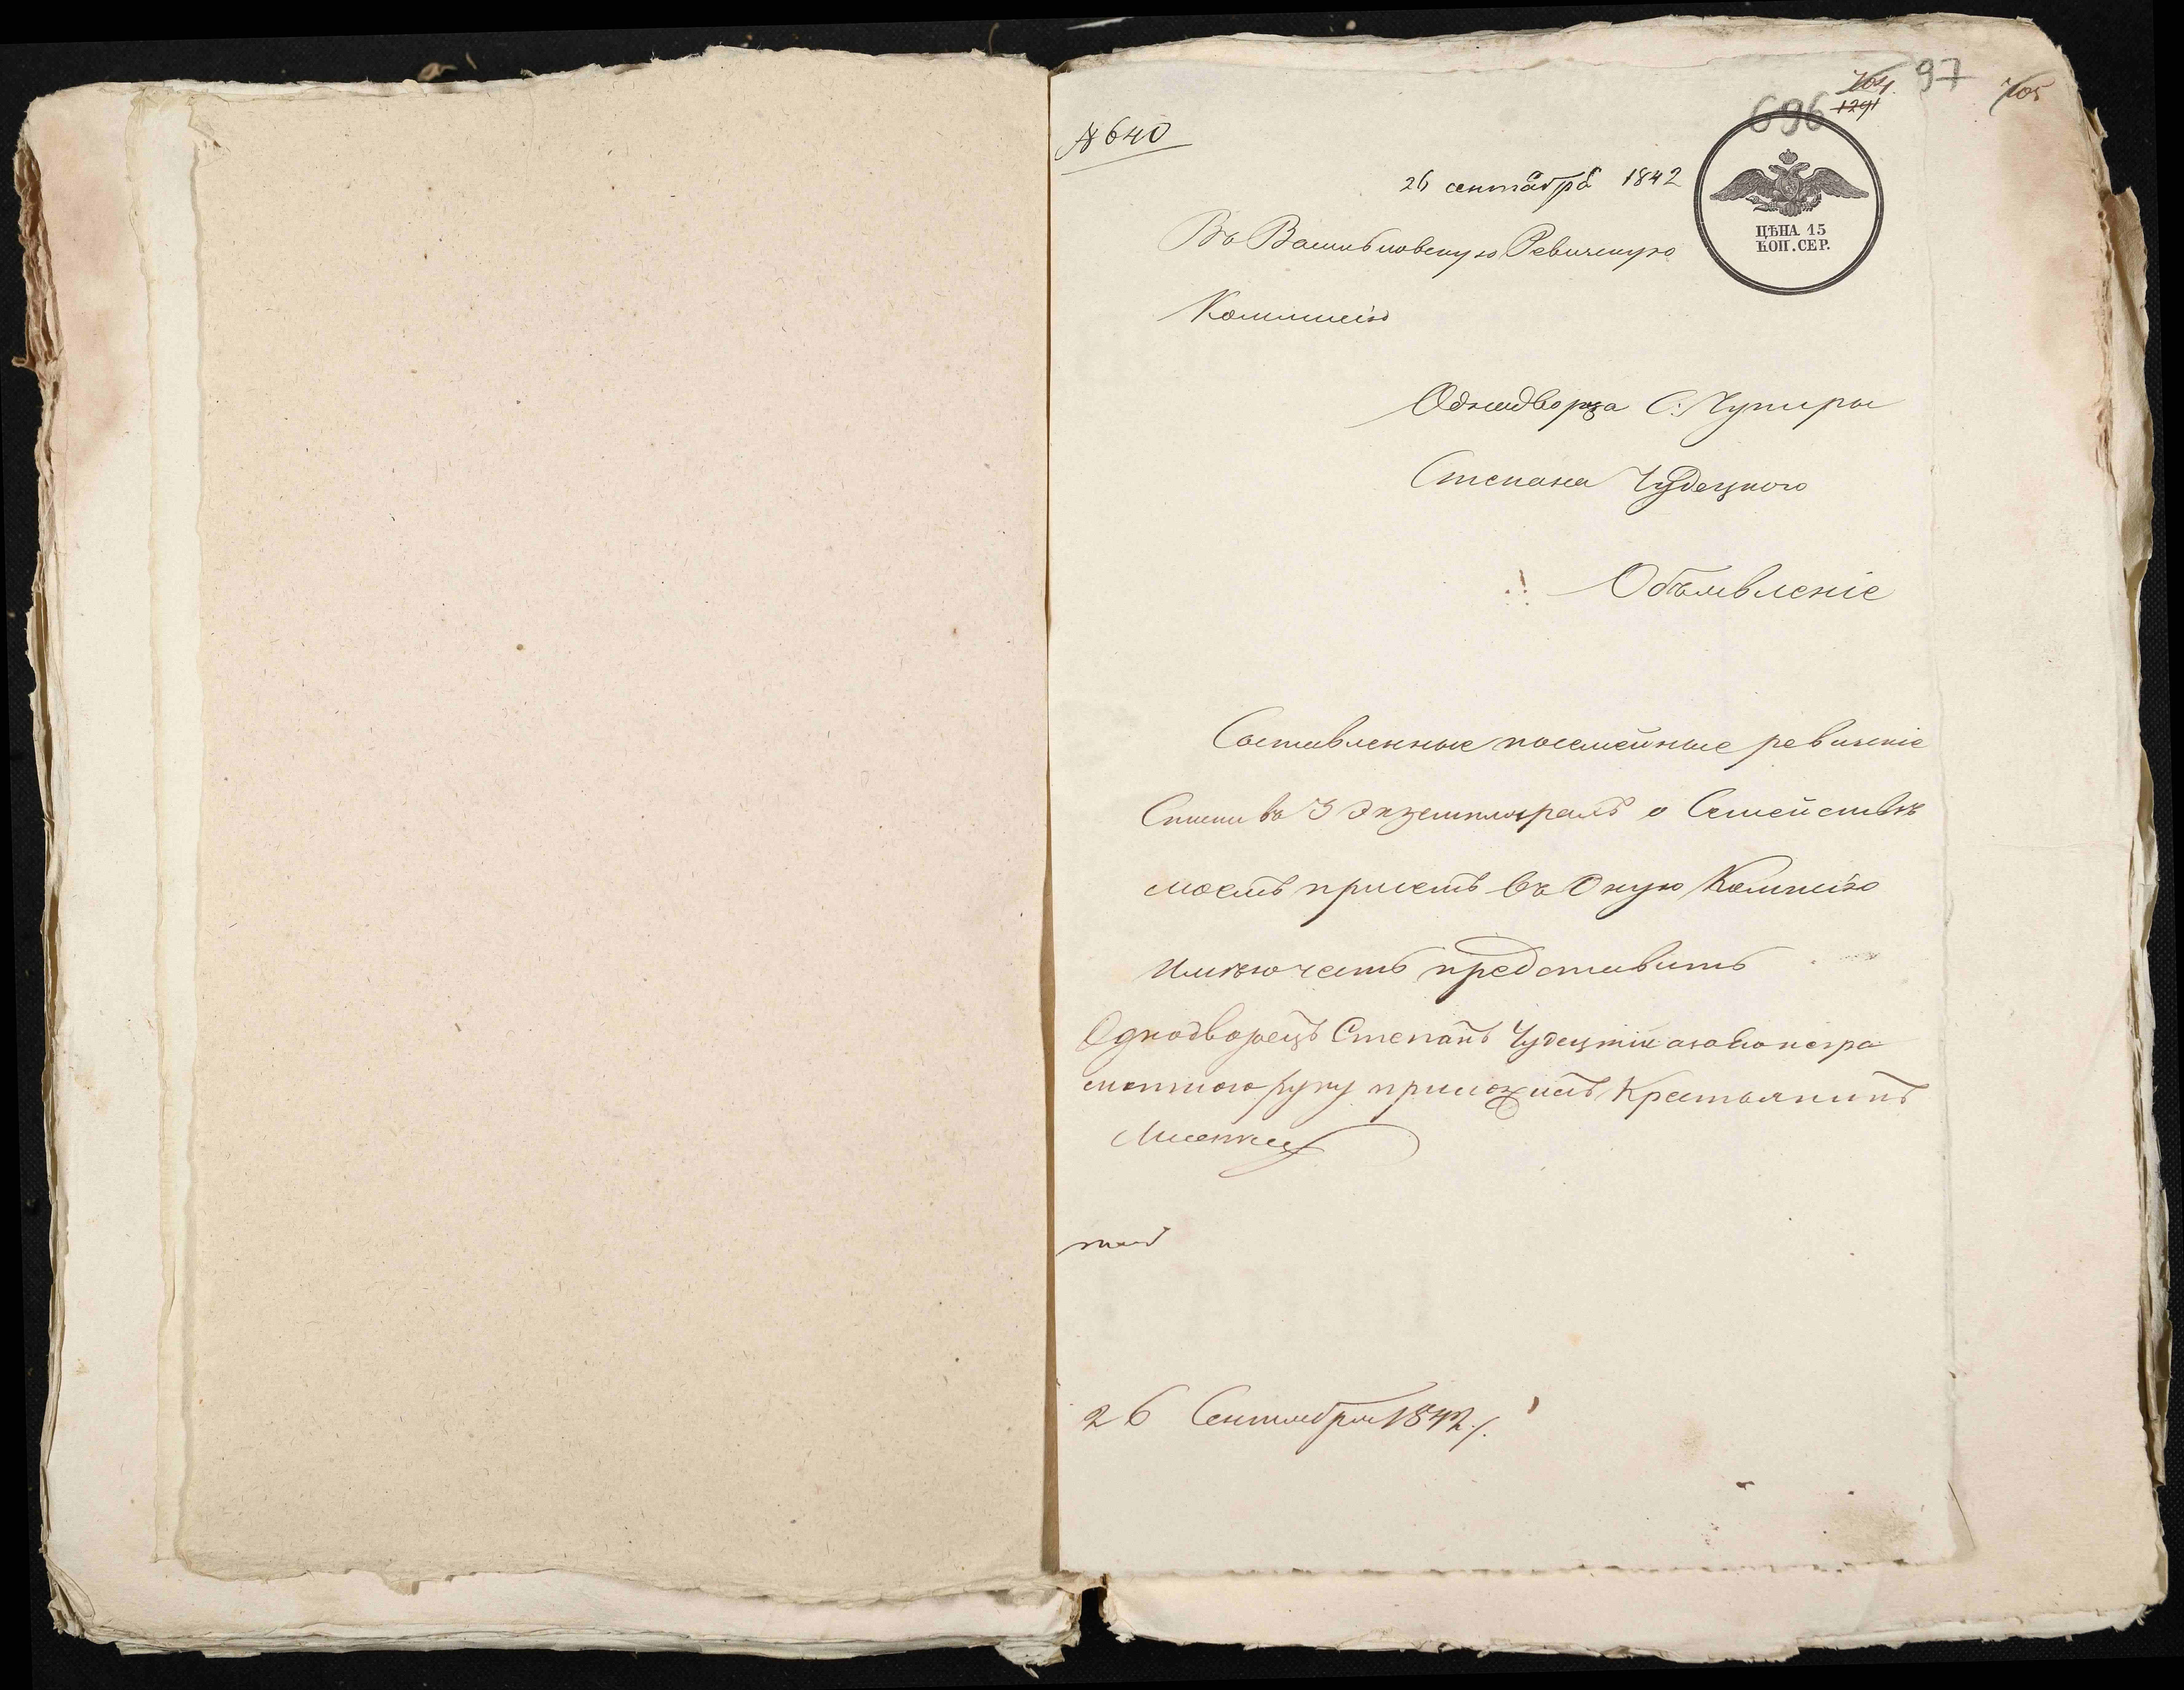 704
1291
97
705
696
№ 640
26 сентября 1842
ЦѢНА 15
КОП. СЕР.
Въ Васильковскую Ревизскую
Коммисію
Однодворца С: Чупиры
Степана Чудецкого
Объявленіе
Составленные посемейные ревизскіе
Списки въ 3 экземплярахъ о Семействѣ
моемъ присемъ въ Оную Комисію
Имѣю честь представить
Однодворецъ Степанъ Чудецкій а за его негра
мотного руку приложилъ Крестьянинъ
26 Сентября 1842 г.